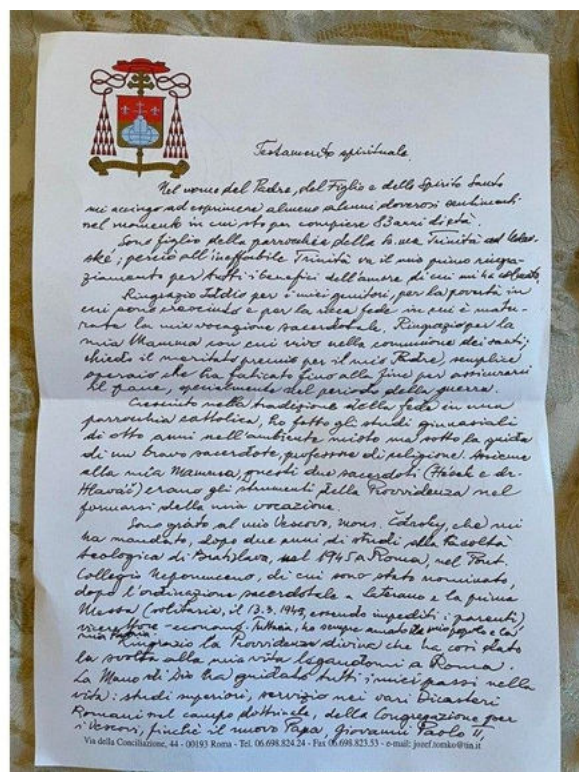 Testamento spirituale.
Nel nome del Padre, del Figlio e dello Spirito Santo
mi accingo ad esprimere almeno alcuni doverosi sentimenti
nel momento in cui sto per compiere 83 anni di età.
Sono figlio della parrocchia della Ss.ma Trinità ad
ské; perciò all'ineffabile Trinità va il mio primo ringra-
ziamento per tutti i benefici dell'amore di cui mi ha colmato.
Ringrazio Iddio per i miei genitori, per la povertà in
cui sono cresciuto e per la ricca fede in cui è matu-
rata la mia vocazione sacerdotale. Ringrazio per la
mia Mamma con cui vivo nella comunione dei santi;
chiedo il meritato premio per il mio Padre, semplice
operaio che ha faticato fino alla fine per assicurarci
il pane, specialmente nel periodo della guerra.
Cresciuto nella tradizione della fede in una
parrocchia cattolica, ho fatto gli studi ginnasiali
di otto anni nell'ambiente misto ma sotto la guida
di un bravo sacerdote, professore di religione. Assieme
alla mia Mamma, questi due sacerdoti (Hásek e dr.
Hlaváč) erano gli strumenti della Provvidenza nel
formarsi della mia vocazione.
Sono grato al mio Vescovo, mons. Čársky, che mi
ha mandato, dopo due anni di studi alla Facoltà
teologica di Bratislava, nel 1945 a Roma, nel Pont.
Collegio Nepomuceno, di cui sono stato nominato,
dopo l'ordinazione sacerdotale a Laterano e la prima
Messa (solitaria, il 13.3.1949, essendo impediti i parenti),
vice - econom. Tuttavia, ho sempre amato il mio popolo e la
mia Patria.
Ringrazio la Provvidenza divina che ha così dato
la svolta alla mia vita legandomi a Roma.
La Mano di Dio ha guidato tutti i miei passi nella
vita: studi superiori, servizio nei vari Dicasteri
Romani nel campo dottrinale, della Congregazione per
i Vescovi, finché il nuovo Papa, Giovanni Paolo II,
Via della Conciliazione, 44 - 00193 Roma - Tel. 06.698.824.24 - Fax 06.698.823.53 - e-mail: jozef.tomko@tin.it